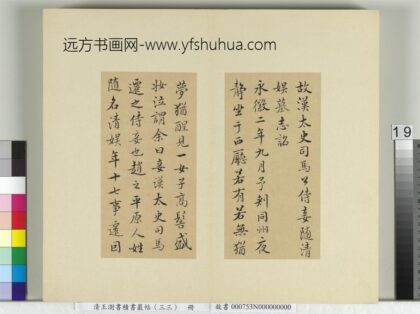 远方书画网-www.yfshuhua.com
故漢太史司馬公侍妾随清
娱墓志銘
永徽二年九月予刺同州夜
静坐于西廳若有若無猶
夢猶醒見一女子高髻盛
妝泣謂余曰妾漢太史司馬
遷之侍妾也趙之平原人姓
随名清娱年十七事遷因
19
清王澍書積書巖帖(三三) 冊 故書 000753N000000000